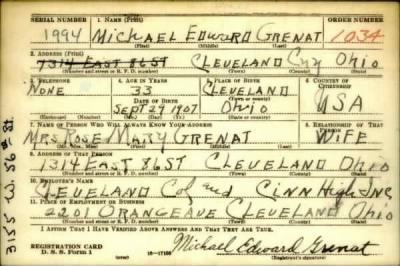 SERIAL NUMBER 1. NAME (Print) ORDER NUMBER
1994 MICHAEL EDWARD GRENAT 1034
(First) (Middle) (Last)
2. ADDRESS (Print)
7314 EAST 86 ST CLEVELAND Cuy OHIO
(Number and street or R. F. D. number) (Town) (County) (State)
3. TELEPHONE 4. AGE IN YEARS 5. PLACE OF BIRTH 6. COUNTRY OF CITIZENSHIP
NONE 33 CLEVELAND
DATE OF BIRTH (Town or county)
SEPT 29 1907 OHIO USA
(Mo.) (Day) (Yr.) (State or country)
7. NAME OF PERSON WHO WILL ALWAYS KNOW YOUR ADDRESS 8. RELATIONSHIP OF THAT PERSON
MRS ROSE MARY GRENAT WIFE
(Mr., Mrs., Miss) (First) (Middle) (Last)
9. ADDRESS OF THAT PERSON
1314 EAST 86 ST CLEVELAND OHIO
(Number and street or R. F. D. number) (Town) (County) (State)
10. EMPLOYER'S NAME
CLEVELAND COL and CINN HIGH INC
11. PLACE OF EMPLOYMENT OR BUSINESS
2201 ORANGE AVE CLEVELAND OHIO
(Number and street or R. F. D. number) (Town) (County) (State)
I AFFIRM THAT I HAVE VERIFIED ABOVE ANSWERS AND THAT THEY ARE TRUE.
REGISTRATION CARD
D. S. S. Form 1 Michael Edward Grenat
(Registrant's signature)
3155 W. 56th St.